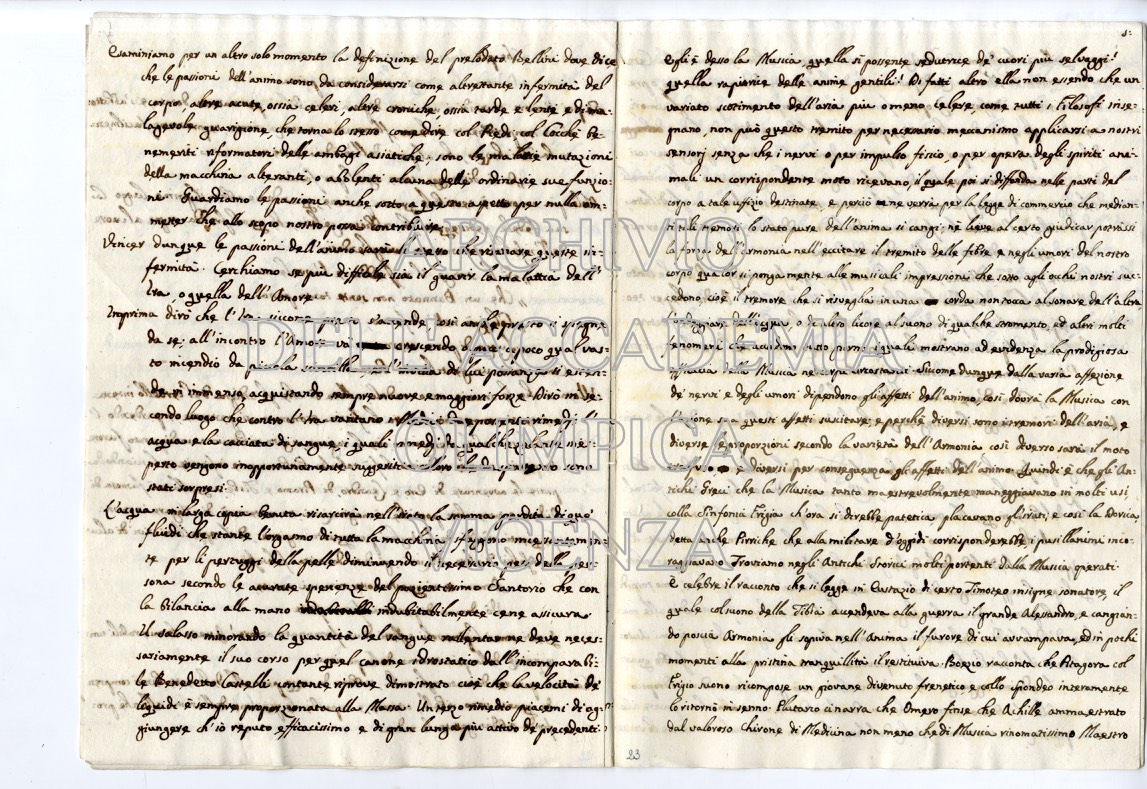 Esaminiamo per un altro solo momento la definizione del prelodato Bellini dove dice
che le passioni dell'animo sono da considerarsi come altretante infermità del
corpo, altre acute, ossia celeri, altre croniche, ossia tarde e lente, e di ma-
lagevole guarigione, che torna lo stesso come dire col Redi, col Cocchi be-
nemeriti riformatori delle ambagi asiatiche, sono le malattie mutazioni
della macchina alteranti, o abolenti alcuna delle ordinarie sue funzio-
ni. Guardiamo le passioni anche sotto a questo aspetto per nulla om-
metter che allo scopo nostro possa contribuire.
Vincer dunque le passioni dell'animo sarà il vero che risanare queste in-
fermità. Cerchiamo se più difficile sia il guarir la malattia dell'
Ira, o quella dell'Amore.
Inprima dirò che l'Ira siccome presto s'accende, così anche presto si spegne
da se; all'incontro l'Amor va crescendo a poco a poco qual vas-
to incendio da piccola scintilla
de in immenso, acquistando sempre nuove e maggiori forze. Dirò in se-
condo luogo che contro l'Ira vantano
acqua e la cacciata di sangue, i quali rimedj
perto vengono inopportunamente suggeriti a loro che d'Amore sono
stati sorpresi.
L'acqua in larga copia bevuta risarcirà nell'Irato la somma perdita di que'
fluidi che stante l'orgasmo di tutta la macchina sfuggono incessantemen-
te per li pertuggi della pelle diminuendo il necessario peso della per-
sona secondo le accurate sperienze del pazientissimo Santorio che con
la bilancia alla mano indubitabilmente cene assicura.
Il salasso minorando la quantità del sangue rallentarne deve neces-
sariamente il suo corso per quel canone idrostatico dall'incomparabi-
le Benedetto Castelli con tante riprove dimostrato cioè che la velocità de'
liquidi è sempre proporzionata alla Massa. Un terzo rimedio piacemi di ag-
giungere ch'io reputo efficacissimo e di gran lunga più attivo de' precedenti.
5.
Egli è desso la Musica, quella sì possente seduttrice de' cuori più selvaggi!
quella rapitrice delle anime gentili! Di fatti altro ella non essendo che un
variato scotimento dell'aria più o meno celere, come tutti i Filosofi inse-
gnano, non può questo tremito per necessario mecanismo applicarsi a nostri
sensorj senza che i nervi o per impulso fisico, o per opera degli spiriti ani-
mali un corrispondente moto ricevano, il quale poi si diffonda nelle parti del
corpo a tale uffizio destinate, e perciò ne verrà per la legge di commercio che median-
ti tali tremori lo stato pure dell'anima si cangi; nè lieve al certo giudicar potrassi
la forza dell'Armonia nell'eccitare il tremito delle fibre e negli umori del nostro
corpo qualor si ponga mente alle musicali impressioni che sotto agli occhi nostri suc-
cedono, cioè il tremore che si risveglia in una corda non tocca al sonare dell'altra
dell'acqua, o di altro licore al suono di qualche stromento, ed altri molti
fenomeni che accadono tutto giorno, i quali mostrano ad evidenza la prodigiosa
efficacia della Musica ne' corpi circostanti. Siccome dunque dalla varia affezione
de' nervi e degli umori dipendono gli affetti dell'animo, così dovrà la Musica con
l'azione sua questi affetti suscitare; e perchè diversi sono i tremori dell'aria, e
diverse le proporzioni secondo la varietà dell'Armonia così diverso sarà il moto
e diversi per conseguenza gli affetti dell'animo. Quindi è che gli An-
tichi Greci che la Musica tanto maestrevolmente maneggiavano in molti usi,
colla Sinfonia Frigia ch'ora si direbbe patetica placavano gl'irati; e così la Dorica
detta anche Pirriche che alla militare d'oggidì corrisponderebbe i pusillanimi inco-
raggiavano. Troviamo negli Antichi Storici molti portenti dalla Musica operati.
È celebre il racconto che si legge in Eustazio di certo Timoteo insigne sonatore, il
quale col suono della Tibia accendeva alla guerra il grande Alesandro, e cangian-
do poscia Armonia gli sopiva nell'Anima il furore di cui avvampava, ed in pochi
momenti alla pristina tranquillità il restituiva. Boezio racconta che Pitagora col
Frigio suono ricompose un giovane divenuto frenetico e collo spondeo interamente
lo ritornò in senno. Plutarco ci narra che Omero finse che Achille ammaestrato
dal valoroso Chirone di Medicina non meno che di Musica rinomatissimo Maestro
23
ARCHIVIO
DELL'ACCADEMIA
OLIMPICA
VICENZA